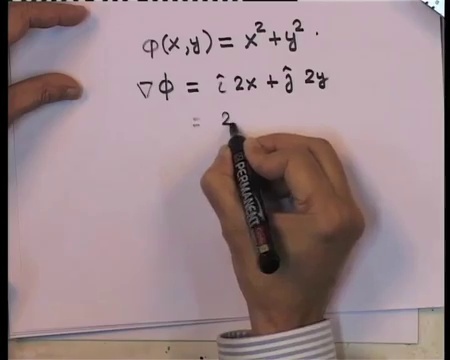 φ(x,y) = x² + y².
∇φ = î 2x + ĵ 2y
= 2
PERMANENT